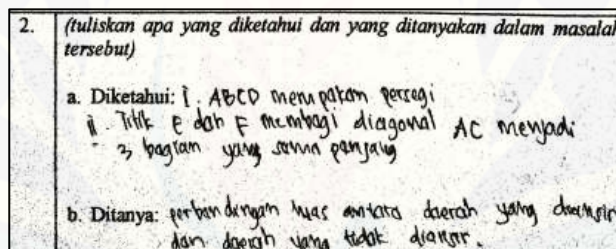 2. (tuliskan apa yang diketahui dan yang ditanyakan dalam masalah
tersebut)
a. Diketahui: i. ABCD merupakan persegi
ii. Titik E dan F membagi diagonal AC menjadi
3 bagian yang sama panjang
b. Ditanya: perbandingan luas antara daerah yang diarsir
dan daerah yang tidak diarsir.